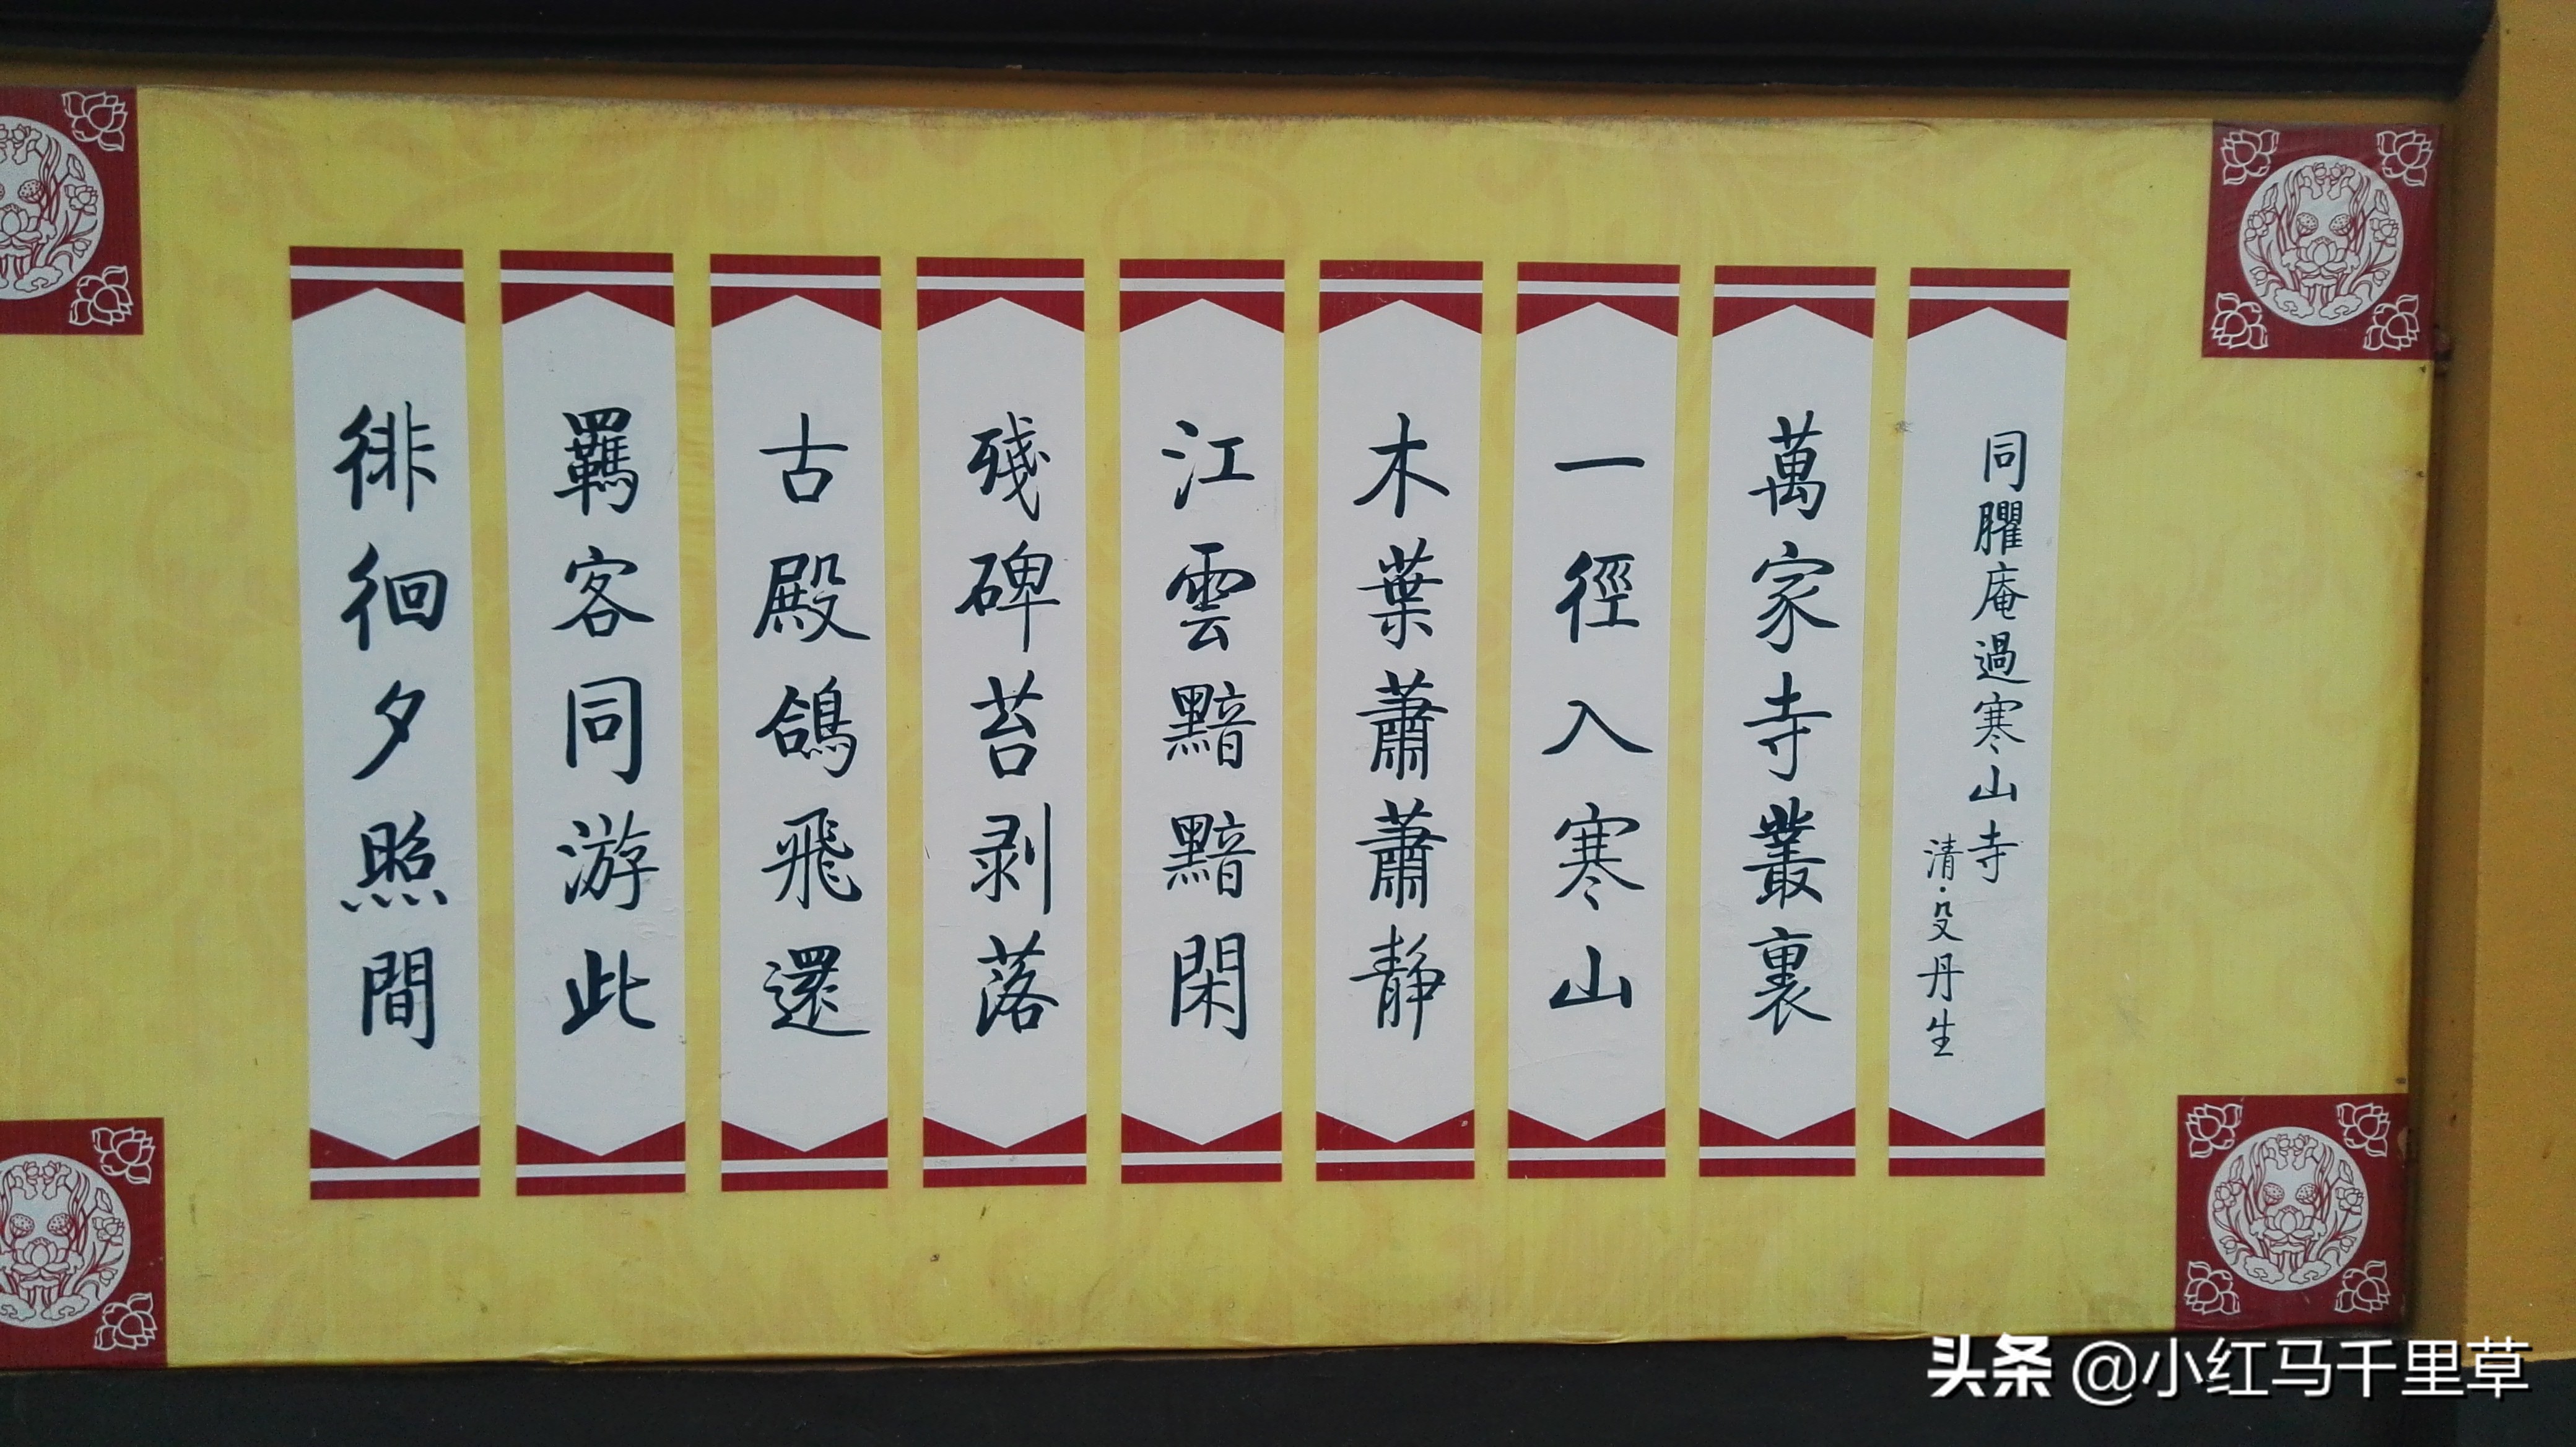 同臞庵過寒山寺
清·殳丹生
萬家寺叢裏
一徑入寒山
木葉蕭蕭靜
江雲黯黯閑
殘碑苔剥落
古殿鴿飛還
羈客同游此
徘徊夕照間
头条 @小红马千里草